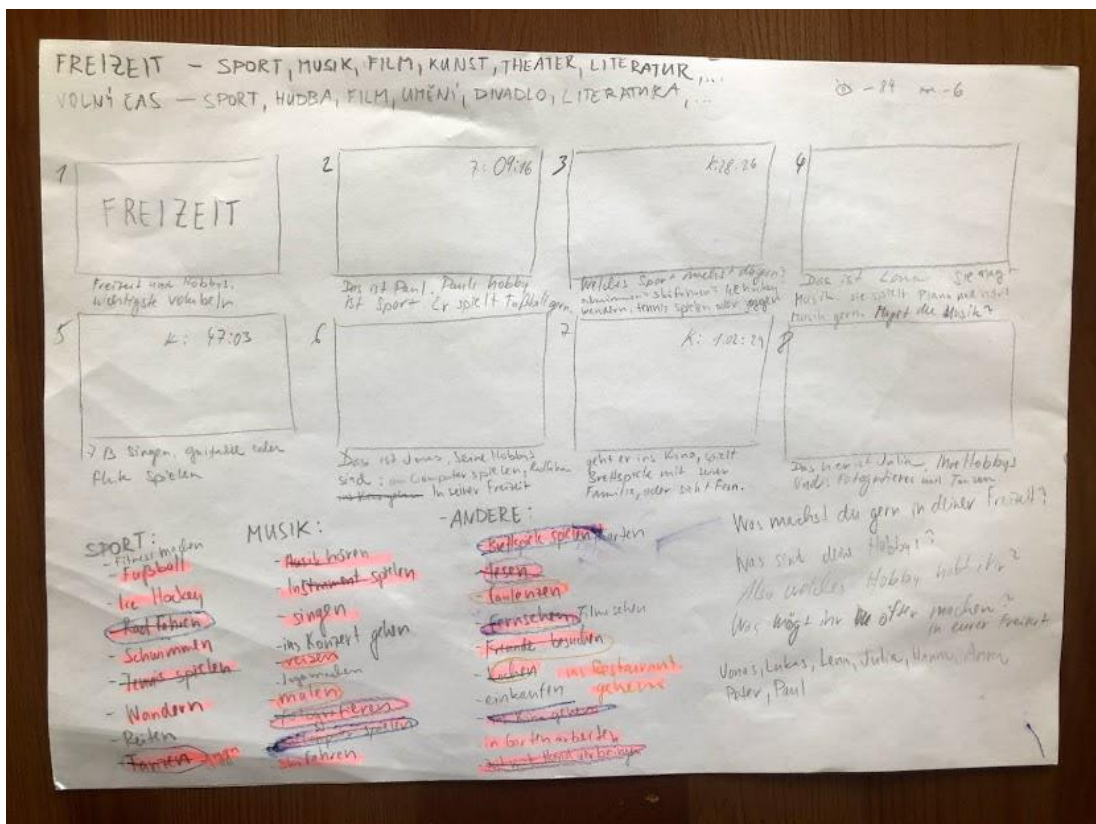 FREIZEIT – SPORT, MUSIK, FILM, KUNST, THEATER, LITERATUR, ...
VOLNÝ ČAS – SPORT, HUDBA, FILM, UMĚNÍ, DIVADLO, LITERATURA, ...
1
FREIZEIT
Freizeit und Hobbys.
wichtigste vokabeln
2
7: 09:16
Das ist Paul. Pauls hobby
ist Sport Er spielt Fußball gern.
3
K:28:26
Welches Sport machst du gern?
wandern, tennis spielen oder
4
Das ist Lena Sie mag
Musik. sie spielt Piano und hört
Musik gern. Magst du Musik?
5
K: 47:03
z B singen, guitarre oder
flute spielen
6
Das ist Jonas, Seine Hobbys
sind: am Computer spielen, Radfahren
ins Kino gehen In seiner Freizeit
7
K: 1:02:29
geht er ins Kino, spielt
Brettspiele mit seiner
Familie, oder sieht Fern.
8
Das hier ist Julia, Ihre Hobbys
sind: Fotografieren und Tanzen
SPORT:
- Fitness machen
- Fußball
- Ice Hockey
- Rad fahren
- Schwimmen
- Tennis spielen
- Wandern
- Reiten
- Tanzen
MUSIK:
- Musik hören
- Instrument spielen
- singen
- ins Konzert gehen
- reisen
- malen
- fotografieren
spielen
skifahren
- ANDERE:
- Brettspiele spielen Karten
- lesen
- faulenzen
- fernsehen Filme sehen
- Freunde besuchen
- kochen ins Restaurant
- einkaufen gehen
- ins Kino gehen
in Garten arbeiten
Was machst du gern in deiner Freizeit?
Was sind deine Hobbys?
Also welches Hobby habt ihr?
Was mögt ihr öfter machen?
in eurer Freizeit
Jonas, Lukas, Lena, Julia, Hanna, Anna
Peter, Paul